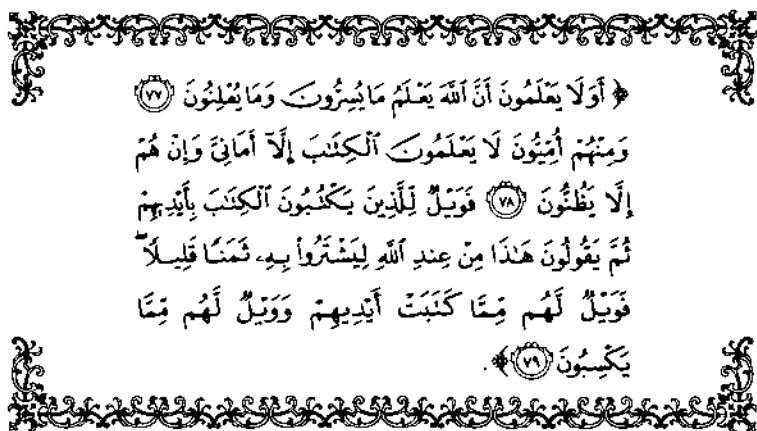 ﴿ أَوَلَا يَعْلَمُونَ أَنَّ ٱللَّهَ يَعْلَمُ مَا يُسِرُّونَ وَمَا يُعْلِنُونَ ٧٧
وَمِنْهُمْ أُمِّيُّونَ لَا يَعْلَمُونَ ٱلْكِتَٰبَ إِلَّآ أَمَانِىَّ وَإِنْ هُمْ
إِلَّا يَظُنُّونَ ٧٨ فَوَيْلٌ لِّلَّذِينَ يَكْتُبُونَ ٱلْكِتَٰبَ بِأَيْدِيهِمْ
ثُمَّ يَقُولُونَ هَٰذَا مِنْ عِندِ ٱللَّهِ لِيَشْتَرُوا۟ بِهِۦ ثَمَنًا قَلِيلًا ۖ
فَوَيْلٌ لَّهُم مِّمَّا كَتَبَتْ أَيْدِيهِمْ وَوَيْلٌ لَّهُم مِّمَّا
يَكْسِبُونَ ٧٩ ﴾.